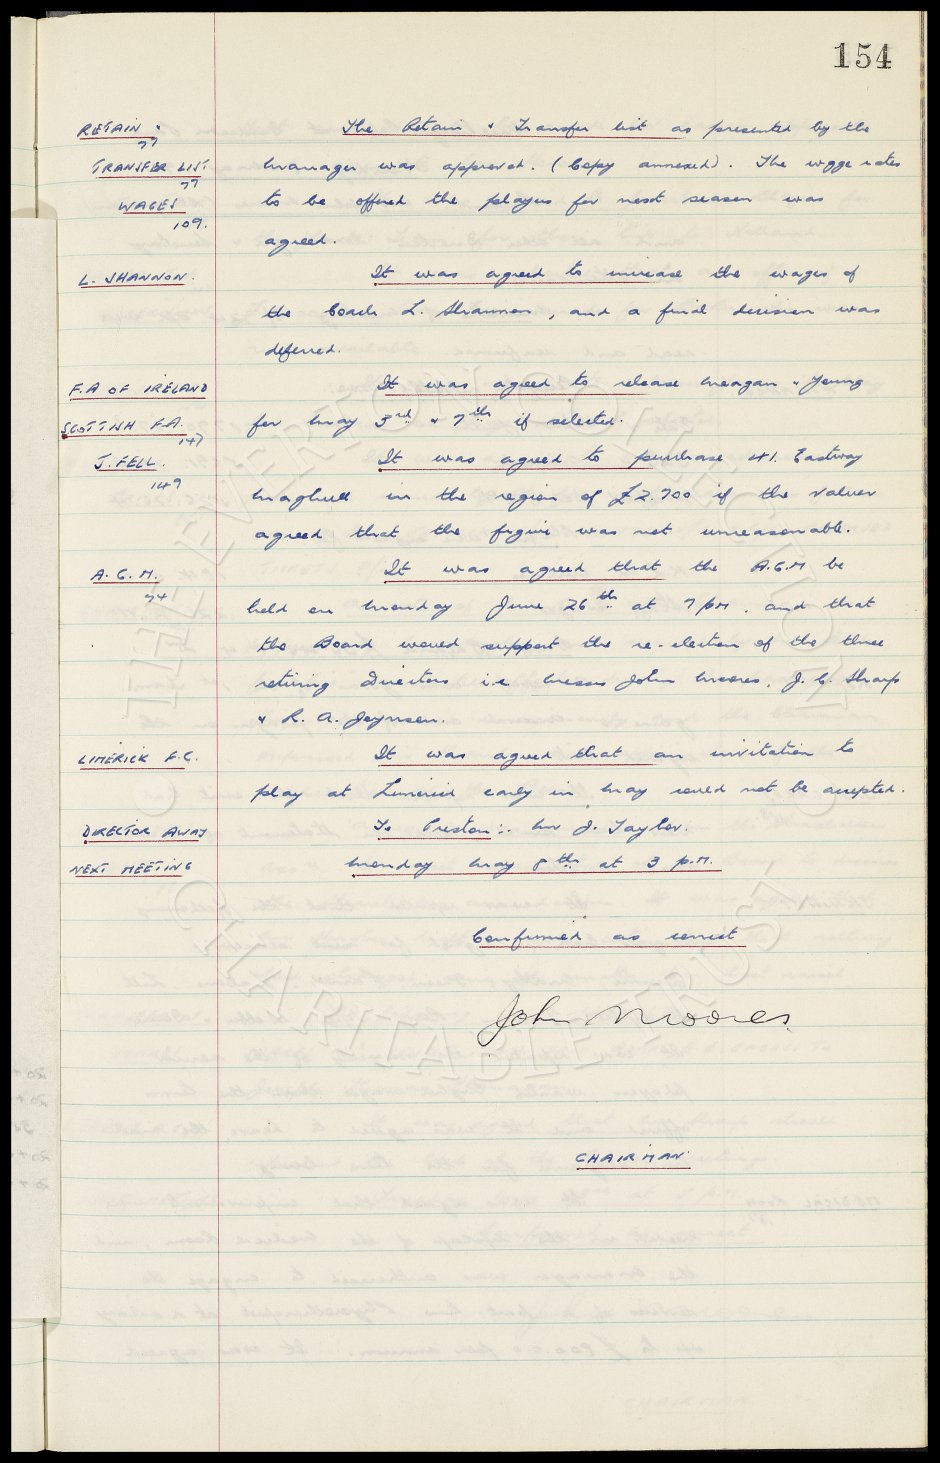 154
RETAIN &
77
The Retain & Transfer list as presented by the
TRANSFER LIST
77
manager was approved. (Copy annexed). The wage rates
WAGES
109.
to be offered the players for next season was
agreed.
L. SHANNON.
It was agreed to increase the wages of
the Coach L. Shannon, and a final decision was
deferred.
F.A OF IRELAND
It was agreed to release Meagan & Young
SCOTTISH F.A.
147
for May 3rd & 7th if selected.
J. FELL.
149
It was agreed to purchase 41. Eastway
Maghull in the region of £2.700 if the valuer
agreed that the figure was not unreasonable.
A.G.M.
74
It was agreed that the A.G.M be
held on Monday June 26th at 7 pm. and that
the Board would support the re-election of the three
retiring Directors i.e. Messrs John Moores, J. C. Sharp
& R. A. Joynson.
LIMERICK F.C.
It was agreed that an invitation to
play at Limerick early in May could not be accepted.
DIRECTOR AWAY
To Preston:- Mr J. Taylor.
NEXT MEETING
Monday May 8th at 3 p.m.
Confirmed as correct
John Moores.
CHAIRMAN
THE EVERTON COLLECTION
CHARITABLE TRUST